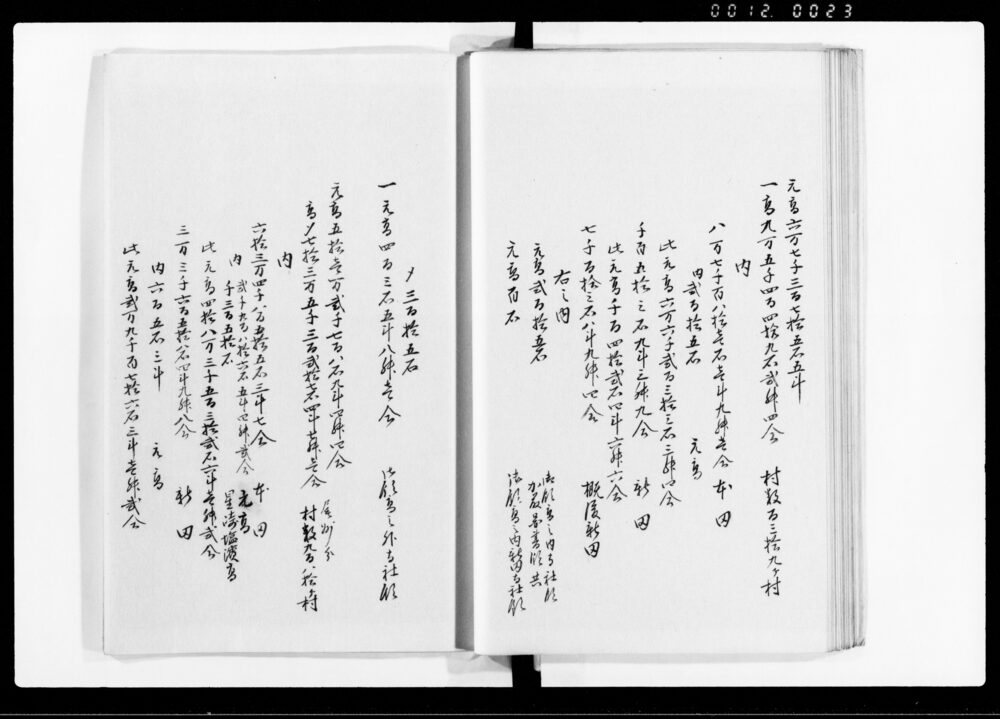 0012. 0023
元高六万七千三百七拾五石五斗
一高九万五千四百四拾九石弐升四合　村数百三拾九ヶ村
内
八万七千百八拾壱石壱斗九升壱合　本田
内弐百拾五石　元高
此元高六万六千弐百三拾三石三升四合
千百五拾三石九斗三升九合　新田
此元高千百四拾弐石四斗六升六合
七千百拾三石八斗九升四合　概浸新田
右之内
元高弐百拾五石　御領高之内寺社領
元高百石　御領高之内新田寺社領
〆三百拾五石
一元高四百三石五斗八升壱合　御領高之外寺社領
元高五拾壱万弐千七百八石九斗四升四合
高〆七拾三万五千三百弐拾七石四斗七升壱合　尾州分
村数九百八拾ヶ村
内
六拾三万四千八百五拾五石三斗七合　本田
内　弐千九百八拾六石五斗四升弐合　元高
千三百五拾石　星崎塩浜高
此元高四拾八万三千五百三拾弐石六斗壱升弐合
三万三千六百五拾六石四斗九升八合　新田
内六百五石三斗　元高
此元高弐万九千百七拾六石三斗壱升弐合